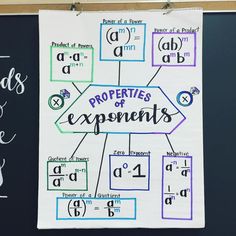 Power of a Power
(aᵐ)ⁿ =
aᵐⁿ
Power of a Product
(ab)ᵐ
aᵐbᵐ
Product of Powers
aᵐ·aⁿ=
aᵐ⁺ⁿ
PROPERTIES
of
exponents
Quotient of Powers
aᵐ/aⁿ = aᵐ⁻ⁿ
Zero Exponent
a⁰=1
Negative
a⁻ⁿ = 1/aⁿ
1/a⁻ⁿ = aⁿ
Power of a Quotient
(a/b)ᵐ = aᵐ/bᵐ